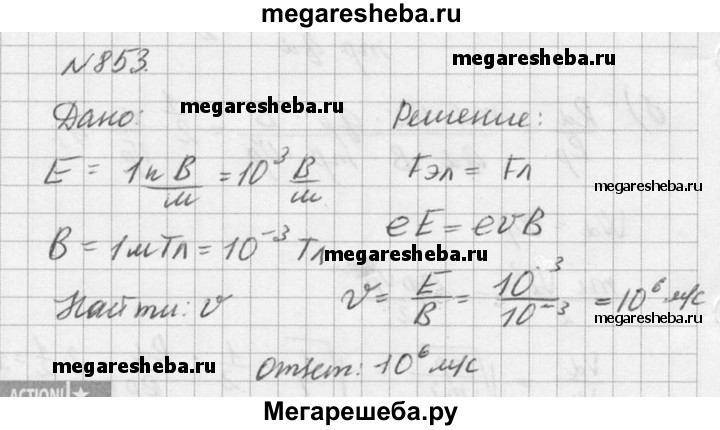 megaresheba.ru
N853.
megaresheba.ru
Дано:
megaresheba.ru
Решение:
E = 1к В/м = 10³ В/м
Fэл = Fл
megaresheba.ru
eE = evB
B = 1мТл = 10⁻³ Тл
megaresheba.ru
Найти: v
v = E/B = 10³/10⁻³ = 10⁶ м/с
megaresheba.ru
megaresheba.ru
Ответ: 10⁶ м/с
ACTION!
Мегарешеба.ру